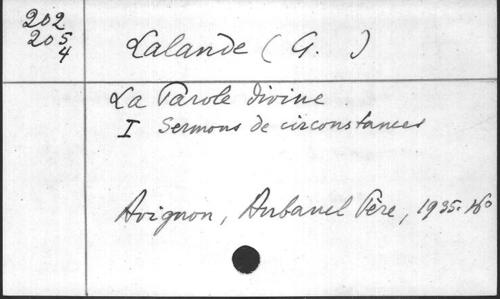 202
205
4
Lalande (G. )
La Parole divine
I Sermons de circonstances
Avignon, Aubanel Père, 1935. 16º